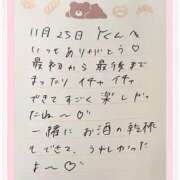 11月25日 Kくんへ
いつもありがとう♡
最初から最後まで
まったり イチャ イチャ
できてすごく楽しかっ
たね〜♡
一緒にお酒の乾杯
もできて、うれしかった
よ〜♡